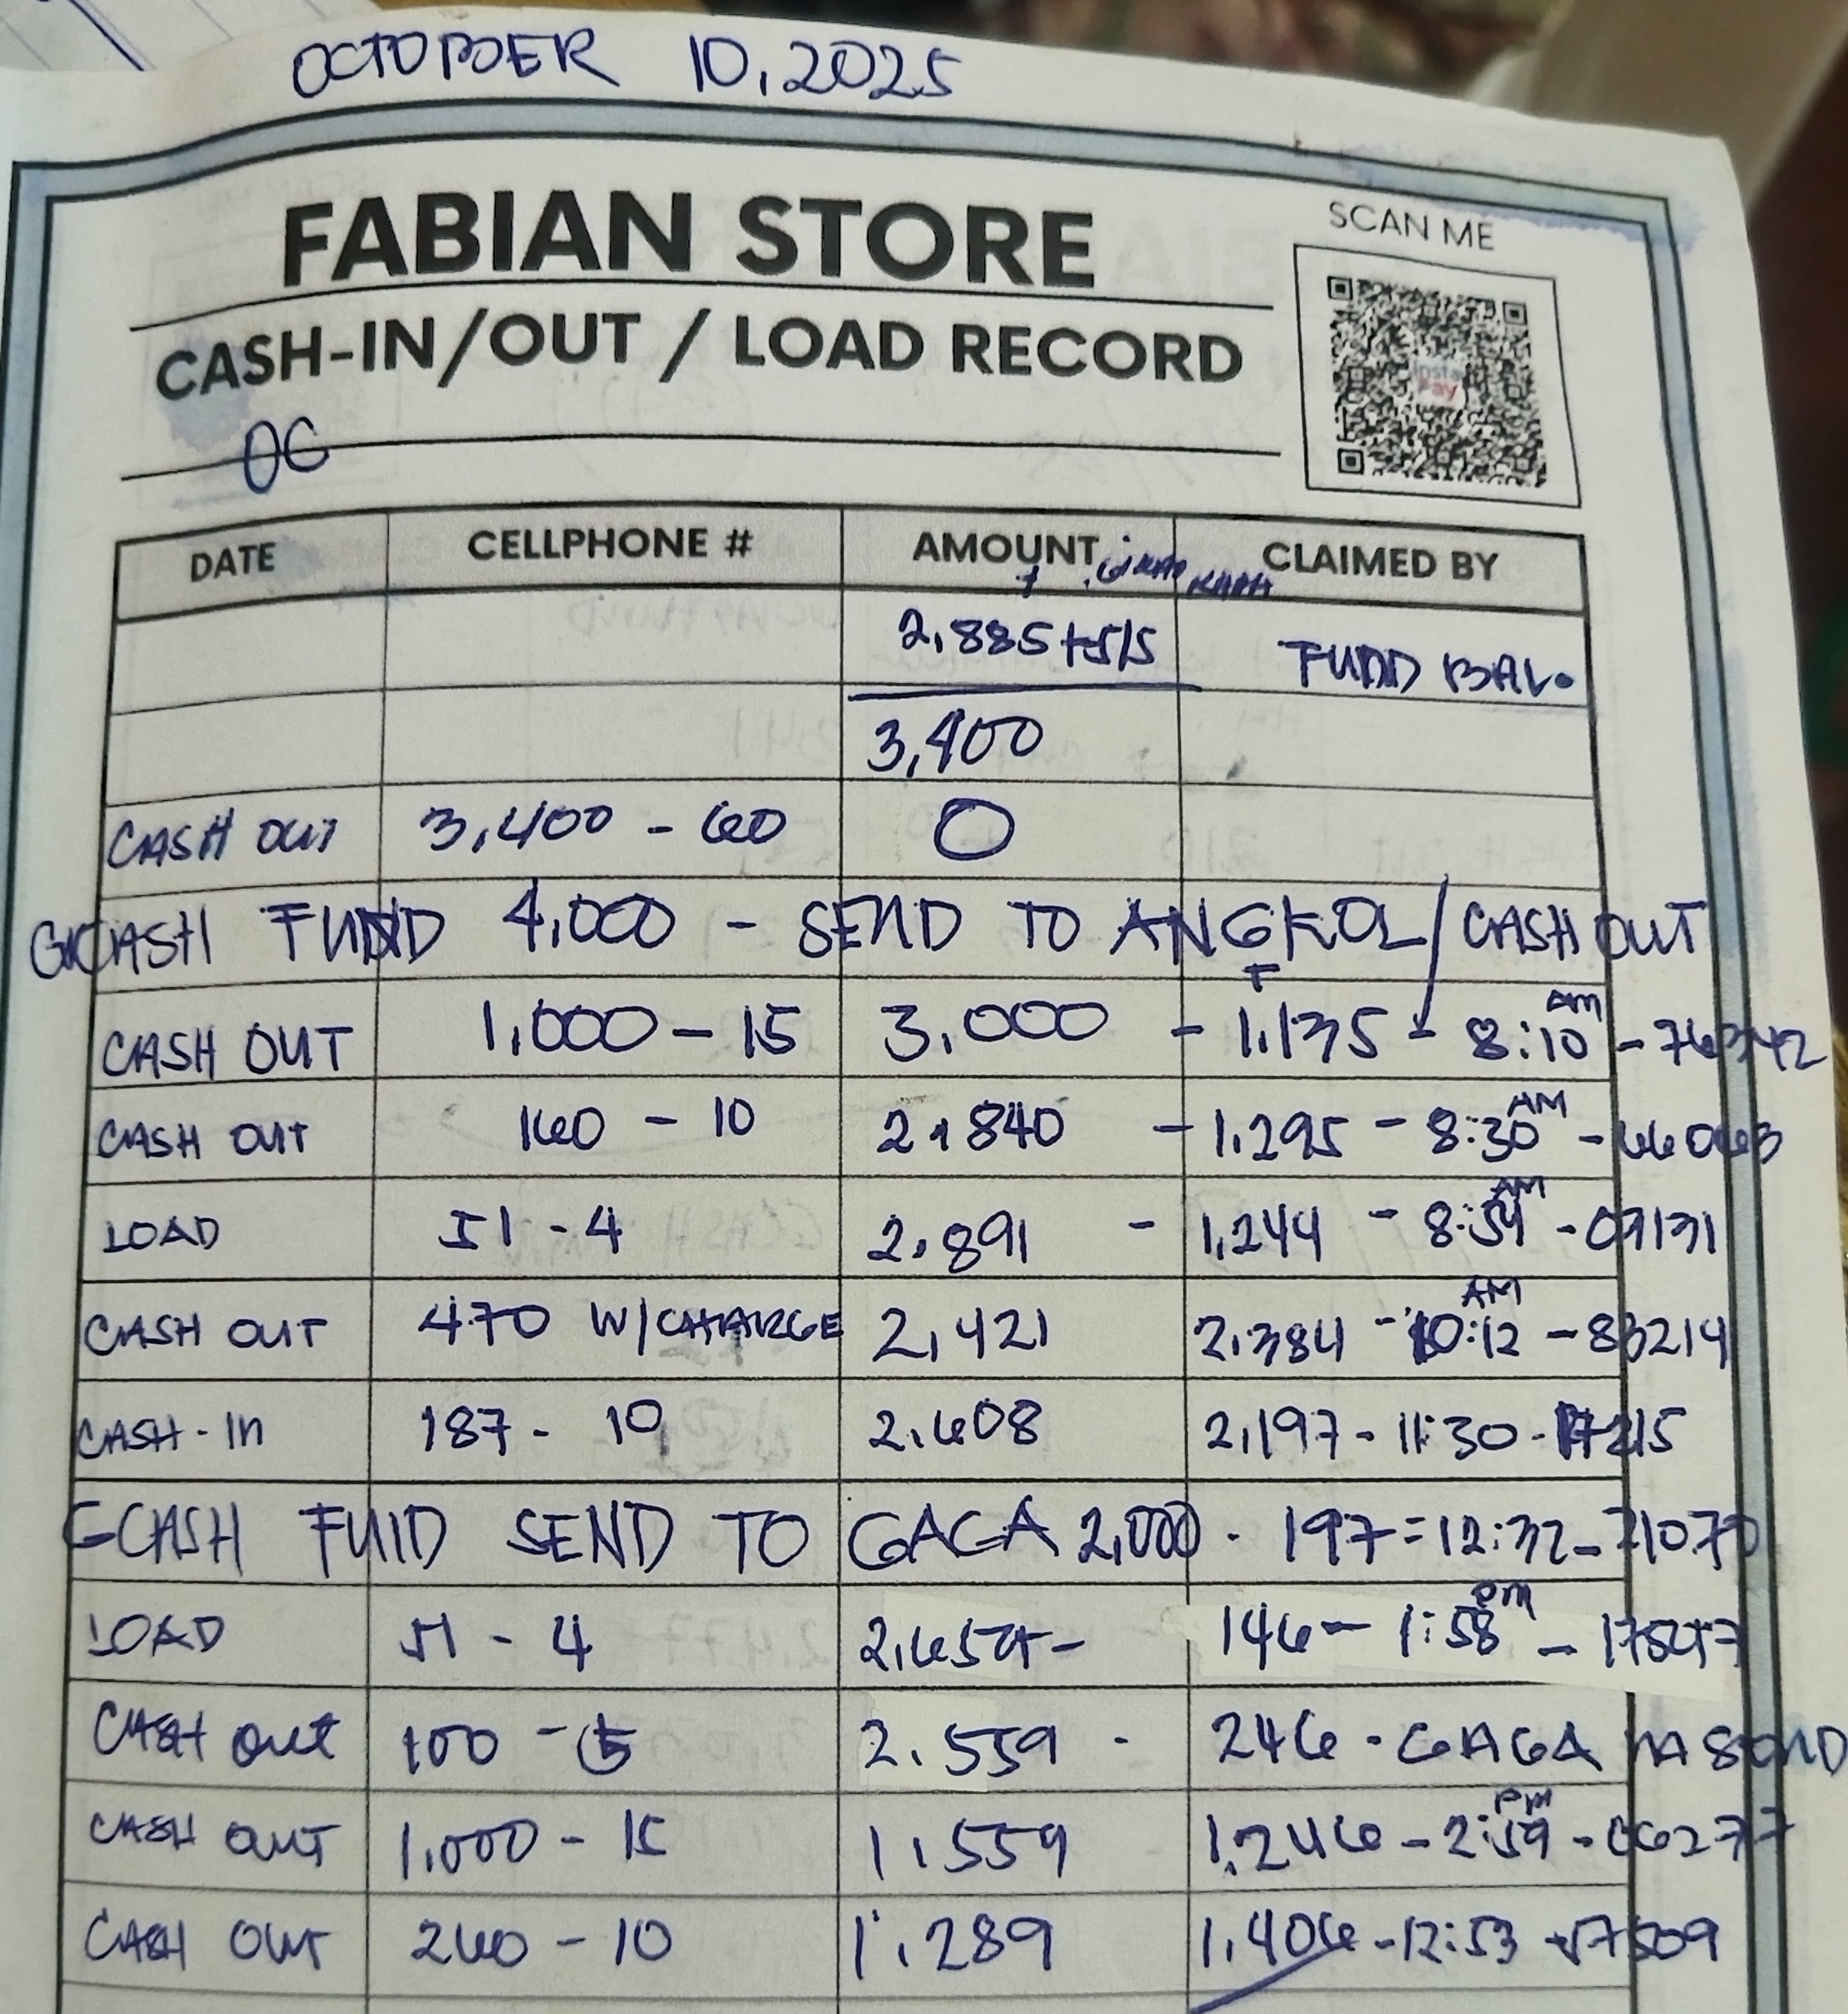 OCTOBER 10, 2025
FABIAN STORE
SCAN ME
CASH-IN/OUT / LOAD RECORD
Insta Pay
OC
DATE CELLPHONE # AMOUNT CLAIMED BY
2,885+515 FUND BAL.
3,400
CASH OUT 3,400 - 60 0
GCASH FUND 4,000 - SEND TO ANGKOL / CASH OUT
CASH OUT 1,000 - 15 3,000 - 1,135 - 8:10 AM - 76342
CASH OUT 160 - 10 2,840 - 1,295 - 8:30 AM - 66063
LOAD 51 - 4 2,891 - 1,244 - 8:54 AM - 07131
CASH OUT 470 W/CHARGE 2,421 2,384 - 10:12 AM - 83214
CASH-IN 187 - 10 2,608 2,197 - 11:30 - 17215
GCASH FUND SEND TO GAGA 2,000 - 197 = 12:32 - 71070
LOAD 51 - 4 2,659 - 146 - 1:58 PM - 17547
CASH OUT 100 - 5 2,559 - 246 - GAGA
CASH OUT 1,000 - 15 1,559 1,246 - 2:59 PM - 06277
CASH OUT 260 - 10 1,289 1,406 - 12:53 - 57509